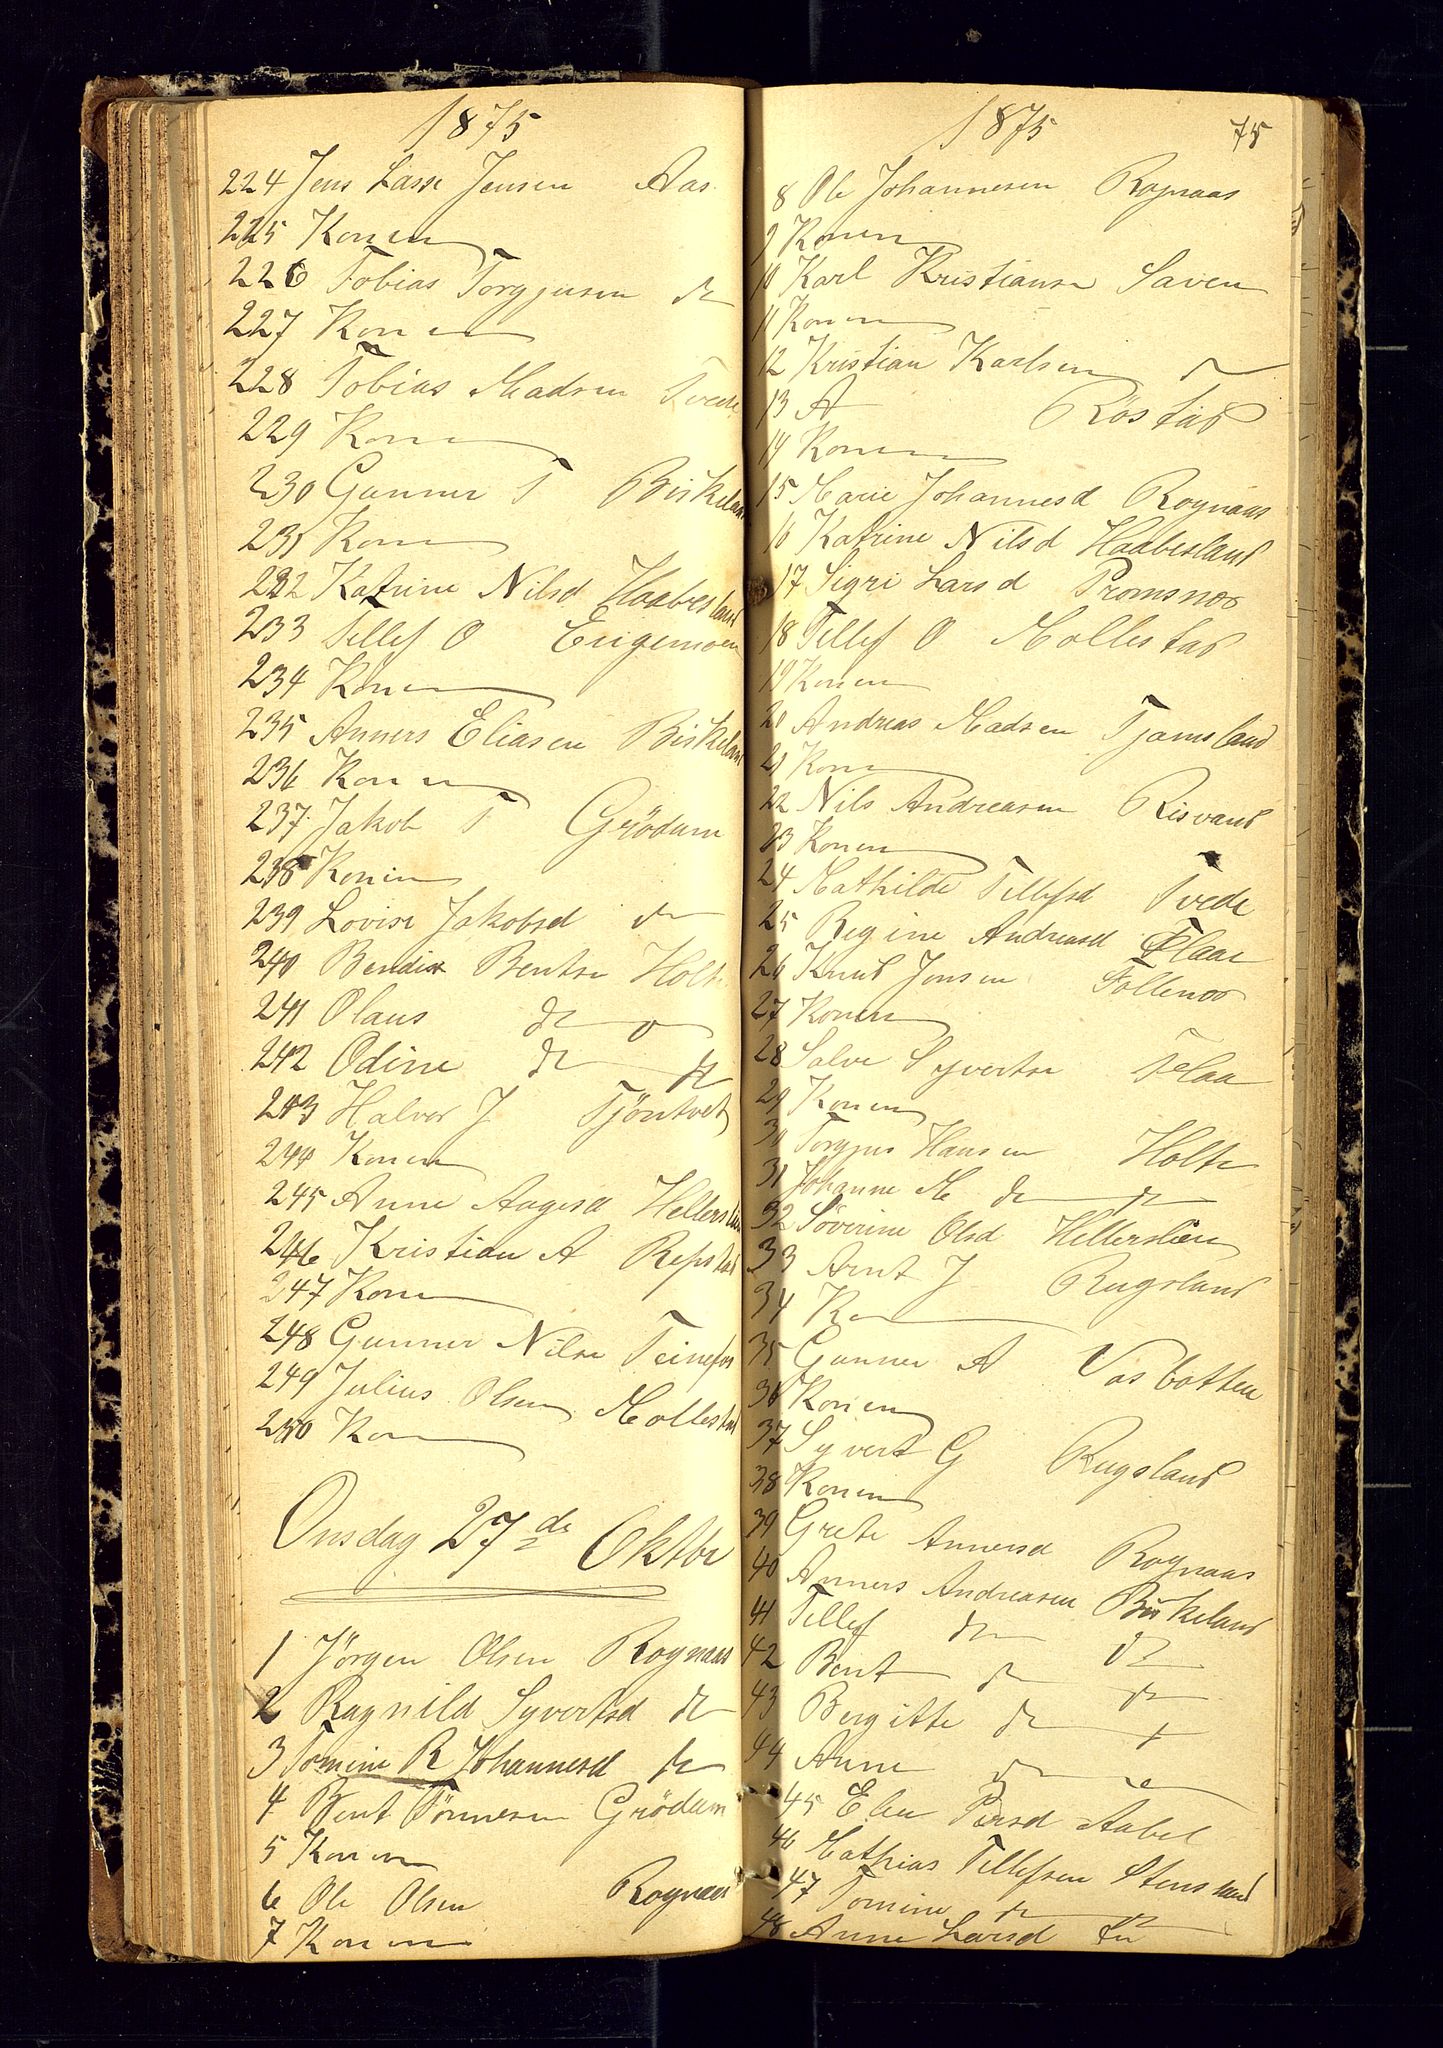 1875
224 Jens Lasse Jensen Aas
225 Konen
226 Tobias Torgjusen do
227 Konen
228 Tobias Madsen Tvede
229 Konen
230 Gunner T Birkeland
231 Konen
232 Katrine Nilsd Haabesland
233 Tellef O Engemoen
234 Konen
235 Anners Eliasen Birkeland
236 Konen
237 Jakob T Grödum
238 Konen
239 Lovise Jakobsd do
240 Bendix Bentse Holte
241 Olaus do do
242 Odine do do
243 Halvor J Tjöntvet
244 Konen
245 Anne Aagesd Hellerslien
246 Kristian A Repstad
247 Konen
248 Gunner Nilse Teinefos
249 Julius Olsen Mollestad
250 Konen
Onsdag 27de Oktbr
1 Jörgen Olsen Rognaas
2 Ragnild Syvertsd do
3 Tomine R Johannesd do
4 Bent Tönnesen Grödum
5 Konen
6 Ole Olsen Rognaas
7 Konen
1875 75
8 Ole Johannesen Rognaas
9 Konen
10 Karl Kristianse Saven
11 Konen
12 Kristian Karlsen do
13 A Röstad
14 Konen
15 Marie Johannesd Rognaas
16 Katrine Nilsd Haabesland
17 Sigri Larsd Promsnos
18 Tellef O Mollestad
19 Konen
20 Andreas Madsen Tjomsland
21 Kone
22 Nils Andreasen Risvand
23 Konen
24 Mathilde Tellefsd Tvede
25 Regine Andreasd Flaae
26 Knud Jonsen Follenos
27 Konen
28 Salve Syvertse Flaa
29 Konen
30 Torgjus Hansen Holte
31 Johanne M do do
32 Söverine Olsd Hellerslien
33 Arnt J Rugsland
34 Ko
35 Gunner A Vasbotten
36 Konen
37 Syvert G Rugsland
38 Konen
39 Grete Annersd Rognaas
40 Anners Andreasen Birkeland
41 Tellef do do
42 Bent do do
43 Bergitte do
44 Anne do
45 Elen Persd Aabel
46 Mathias Tellefsen Stensland
47 Tomine do do
48 Anne Larsd do